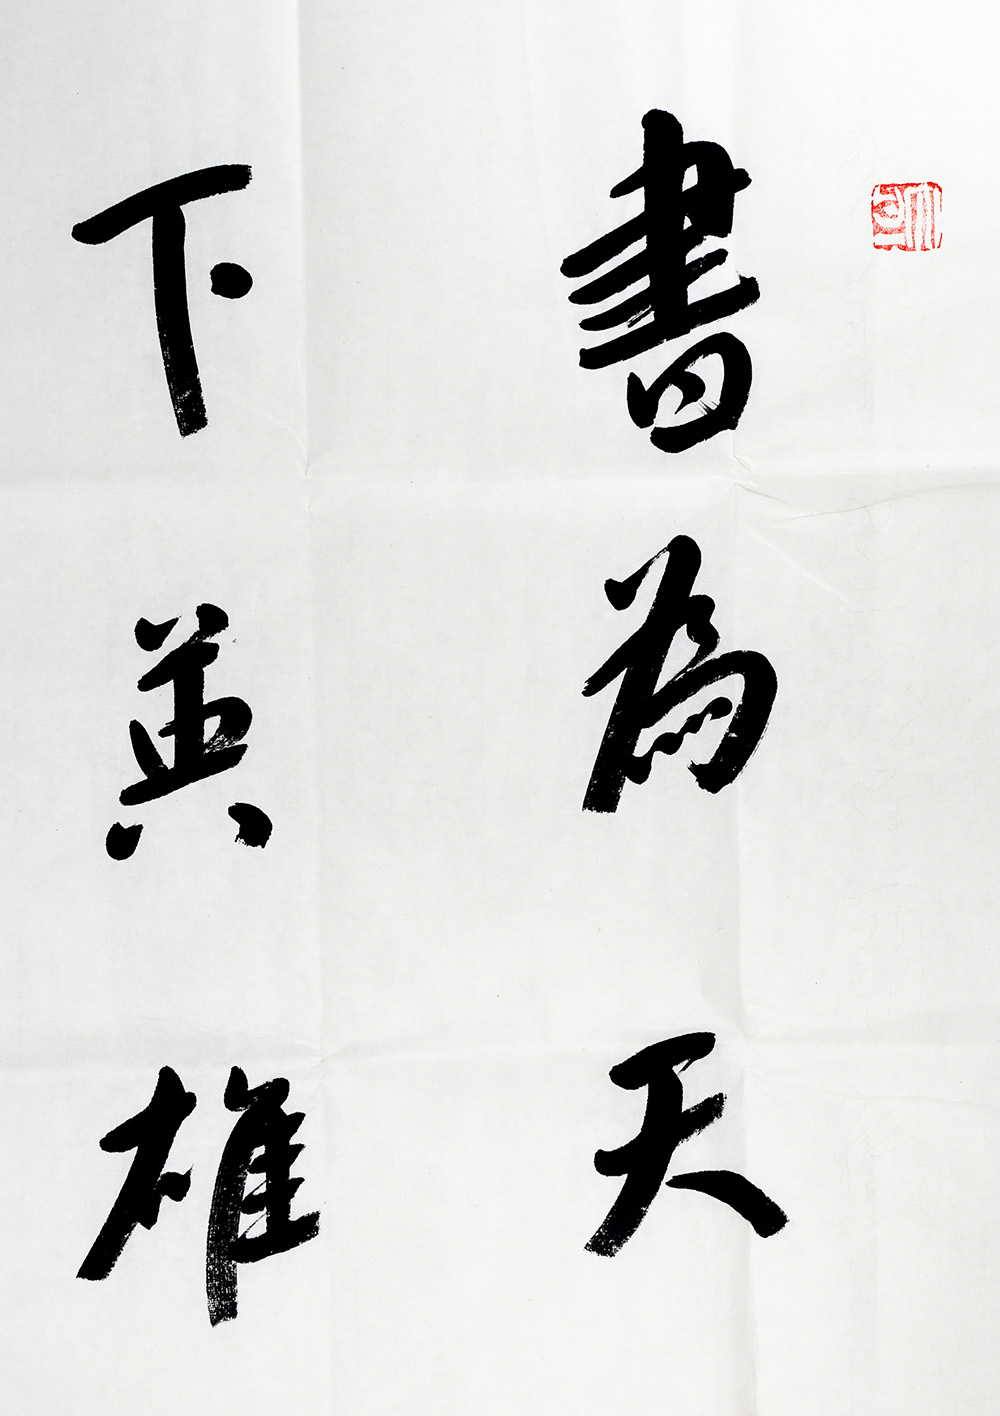 書為天
下英雄